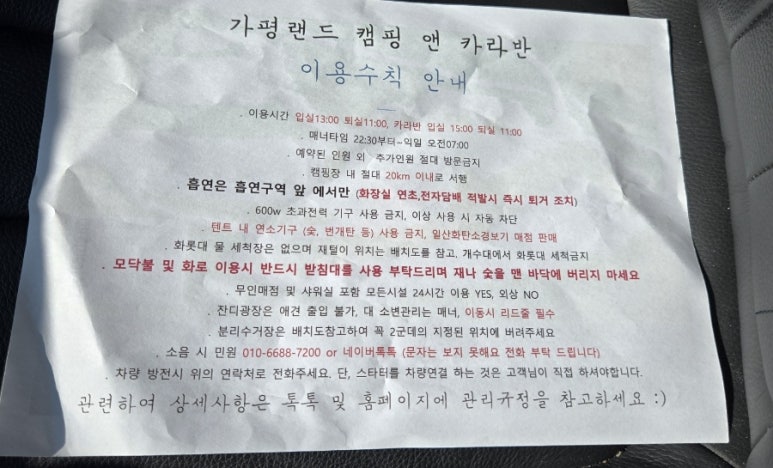 가평랜드 캠핑 앤 카라반
이용수칙 안내
. 이용시간 입실13:00 퇴실11:00, 카라반 입실 15:00 퇴실 11:00
. 매너타임 22:30부터~익일 오전07:00
. 예약된 인원 외 추가인원 절대 방문금지
. 캠핑장 내 절대 20km 이내로 서행
. 흡연은 흡연구역 앞 에서만 (화장실 연초,전자담배 적발시 즉시 퇴거 조치)
. 600w 초과전력 기구 사용 금지, 이상 사용 시 자동 차단
. 텐트 내 연소기구 (숯, 번개탄 등) 사용 금지, 일산화탄소경보기 매점 판매
. 화롯대 물 세척장은 없으며 재털이 위치는 배치도를 참고, 개수대에서 화롯대 세척금지
. 모닥불 및 화로 이용시 반드시 받침대를 사용 부탁드리며 재나 숯을 맨 바닥에 버리지 마세요
. 무인매점 및 샤워실 포함 모든시설 24시간 이용 YES, 외상 NO
. 잔디광장은 애견 출입 불가, 대 소변관리는 매너, 이동시 리드줄 필수
. 분리수거장은 배치도참고하여 꼭 2군데의 지정된 위치에 버려주세요
. 소음 시 민원 010-6688-7200 or 네이버톡톡 (문자는 보지 못해요 전화 부탁 드립니다)
. 차량 방전시 위의 연락처로 전화주세요. 단, 스타터를 차량연결 하는 것은 고객님이 직접 하셔야합니다.
관련하여 상세사항은 톡톡 및 홈페이지에 관리규정을 참고하세요 :)